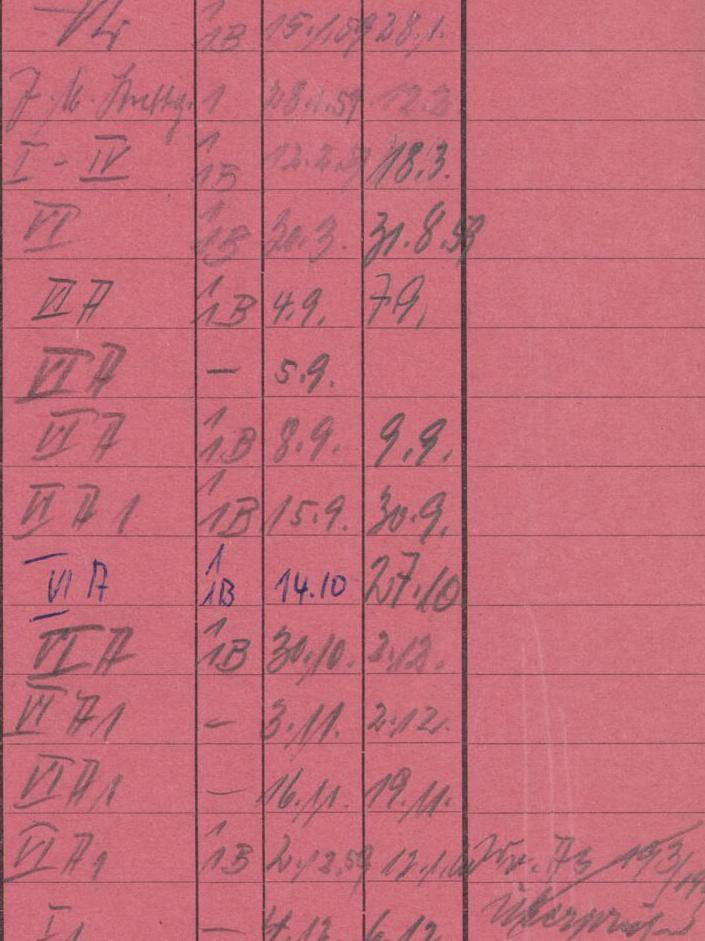 1
1B 15.1.59 28.1.
J. M. 1 28.1.59 12.2
I - IV 1 1B 12.2.59 18.3.
VI 1 1B 30.3. 31.8.59
VI A 1 1B 4.9. 7.9.
VI A — 5.9.
VI A 1 1B 8.9. 9.9.
VI A 1 1 1B 15.9. 30.9.
VI A 1 1B 14.10 27.10
VI A 1 1B 30.10. 2.12.
VI A 1 — 3.11. 2.12.
VI A 1 — 16.11. 19.11.
VI A 1 1 1B 2.12.59 12.1.
— 4.12. 6.12